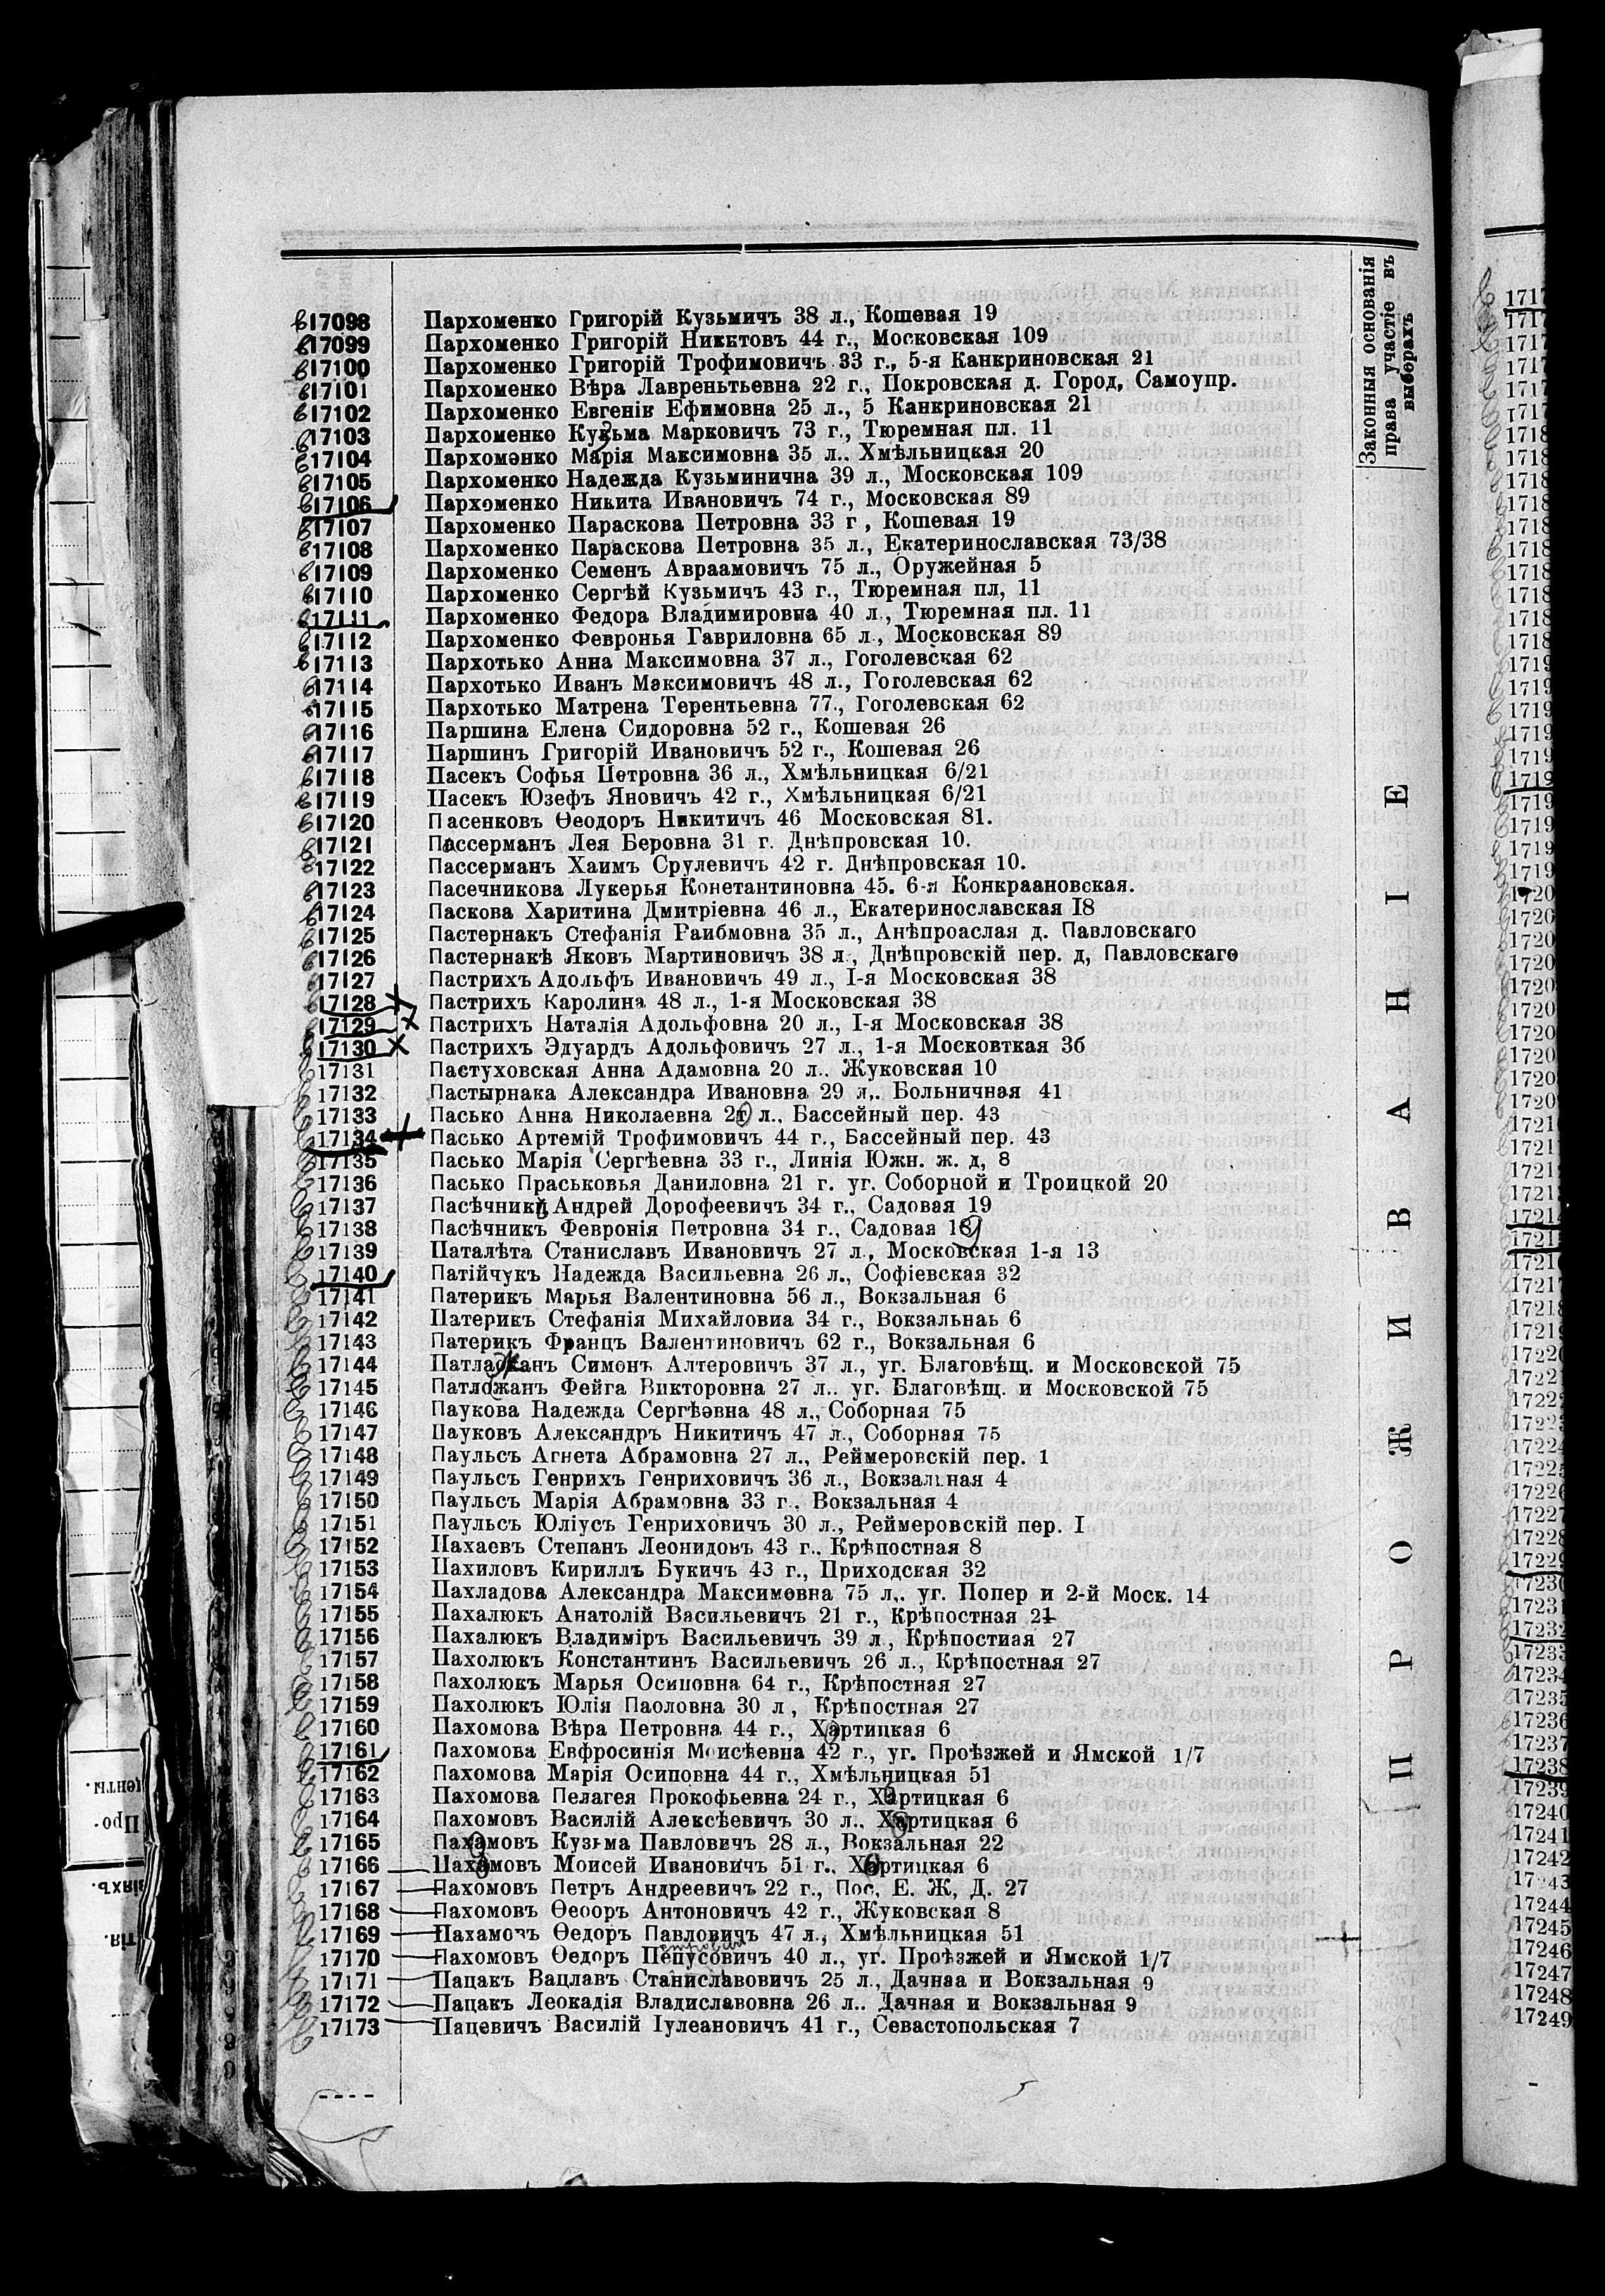 Законныя основанія
права участіе въ
выборахъ
17098 Пархоменко Григорій Кузьмичъ 38 л., Кошевая 19
17099 Пархоменко Григорій Никктовъ 44 г., Московская 109
17100 Пархоменко Григорій Трофимовичъ 33 г., 5-я Канкриновская 21
17101 Пархоменко Вѣра Лавреньтьевна 22 г., Покровская д. Город, Самоупр.
17102 Пархоменко Евгенів Ефимовна 25 л., 5 Канкриновская 21
17103 Пархоменко Кузьма Марковичъ 73 г., Тюремная пл. 11
17104 Пархоменко Марія Максимовна 35 л.. Хмѣльницкая 20
17105 Пархоменко Надежда Кузьминична 39 л., Московская 109
17106 Пархоменко Никита Ивановичъ 74 г., Московская 89
17107 Пархоменко Параскова Петровна 33 г , Кошевая 19
17108 Пархоменко Параскова Петровна 35 л., Екатеринославская 73/38
17109 Пархоменко Семенъ Авраамовичъ 75 л., Оружейная 5
17110 Пархоменко Сергѣй Кузьмичъ 43 г., Тюремная пл, 11
17111 Пархоменко Федора Владимировна 40 л., Тюремная пл. 11
17112 Пархоменко Февронья Гавриловна 65 л., Московская 89
17113 Пархотько Анна Максимовна 37 л., Гоголевская 62
17114 Пархотько Иванъ Максимовичъ 48 л., Гоголевская 62
17115 Пархотько Матрена Терентьевна 77., Гоголевская 62
17116 Паршина Елена Сидоровна 52 г., Кошевая 26
17117 Паршинъ Григорій Ивановичъ 52 г., Кошевая 26
17118 Пасекъ Софья Петровна 36 л., Хмѣльницкая 6/21
17119 Пасекъ Юзефъ Яновичъ 42 г., Хмѣльницкая 6/21
17120 Пасенковъ Ѳеодоръ Никитичъ 46 Московская 81.
17121 Пассерманъ Лея Беровна 31 г. Днѣпровская 10.
17122 Пассерманъ Хаимъ Срулевичъ 42 г. Днѣпровская 10.
17123 Пасечникова Лукерья Конетантиновна 45. 6-я Конкраановская.
17124 Паскова Харитина Дмитріевна 46 л., Екатеринославская I8
17125 Пастернакъ Стефанія Раибмовна 35 л., Анѣпроаслая д. Павловскаго
17126 Пастернакѣ Яковъ Мартиновичъ 38 л., Днѣпровскій пер. д, Павловскаго
17127 Пастрихъ Адольфъ Ивановичъ 49 л., I-я Московская 38
17128 Пастрихъ Каролина 48 л., 1-я Московская 38
17129 Пастрихъ Наталія Адольфовна 20 л., I-я Московская 38
17130 Пастрихъ Эдуардъ Адольфовичъ 27 л., 1-я Московткая 3б
17131 Пастуховская Анна Адамовна 20 л.. Жуковская 10
17132 Пастырнака Александра Ивановна 29 л,. Больничная 41
17133 Пасько Анна Николаевна л., Бассейный пер. 43
17134 Пасько Артемій Трофимовичъ 44 г., Бассейный пер. 43
17135 Пасько Марія Сергѣевна 33 г., Линія Южн. ж. д, 8
17136 Пасько Праськовья Даниловна 21 г. уг. Соборной и Троицкой 20
17137 Пасѣчникъ Андрей Дорофеевичъ 34 г., Садовая 19
17138 Пасѣчникъ Февронія Петровна 34 г., Садовая 19
17139 Паталѣта Станиславъ Ивановичъ 27 л., Московская 1-я 13
17140 Патійчукъ Надежда Васильевна 26 л., Софіевская 32
17141 Патерикъ Марья Валентиновна 56 л., Вокзальная 6
17142 Патерикъ Стефанія Михайловиа 34 г., Вокзальнаь 6
17143 Патерикъ Францъ Валентиновичъ 62 г., Вокзальная 6
17144 Патлажанъ Симонъ Алтеровичъ 37 л., уг. Благовѣщ. и Московской 75
17145 Патлажанъ Фейга Викторовна 27 л.. уг. Благовѣщ. и Московской 75
17146 Паукова Надежда Сергѣэвна 48 л., Соборная 75
17147 Пауковъ Александръ Никитичъ 47 л., Соборная 75
17148 Паульсъ Агнета Абрамовна 27 л., Реймеровскій пер. 1
17149 Паульсъ Генрихъ Генриховичъ 36 л., Вокзальная 4
17150 Паульсъ Марія Абрамовна 33 г., Вокзальная 4
17151 Паульсъ Юліусъ Генриховичъ 30 л., Реймеровскій пер. I
17152 Пахаевъ Степанъ Леонидовъ 43 г.. Крѣпостная 8
17153 Пахиловъ Кириллъ Букичъ 43 г., Приходская 32
17154 Пахладова Александра Максимовна 75 л,. уг. Попер и 2-й Моск. 14
17155 Пахалюкъ Анатолій Васильевичъ 21 г., Крѣпостная 21
17156 Пахалюкъ Владиміръ Васильевичъ 39 л., Крѣпостиая 27
17157 Пахолюкъ Константинъ Васильевичъ 26 л., Крѣпостная 27
17158 Пахолюкъ Марья Осиповна 64 г., Крѣпостная 27
17159 Пахолюкъ Юлія Паоловна 30 л , Крѣпостная 27
17160 Пахомова Вѣра Петровна 44 г., Хортицкая 6
17161 Пахомова Евфросинія Моисѣевна 42 г., уг. Проѣзжей и Ямской 1/7
17162 Пахомова Марія Осиповна 44 г., Хмѣльницкая 51
17163 Пахомова Пелагея Прокофьевна 24 г., Хортицкая 6
17164 Пахомовъ Василій Алексѣевичъ 30 л.. Хортицкая 6
17165 Пахомовъ Кузьма Павловичъ 28 л., Вокзальная 22
17166 Пахомовъ Моисей Ивановичъ 51 г.. Хортицкая 6
17167 Пахомовъ Петръ Андреевичъ 22 г., Пос. Е. Ж, Д. 27
17168 Пахомовъ Ѳеооръ Антоновичъ 42 г., Жуковская 8
17169 Пахамовъ Ѳедоръ Павловичъ 47 л., Хмѣльницкая 51
17170 Пахомовъ Ѳедоръ Пепусовичъ 40 л., уг. Проѣзжей и Ямской 1/7
17171 Пацакъ Вацлавъ Станиславовичъ 25 л., Дачнаа и Вокзальная 9
17172 Пацакъ Леокадія Владиславовна 26 л.. Дачная и Вокзальная 9
17173 Пацевичъ Василій Іулеановичъ 41 г., Севастопольская 7
ПРОЖИВАНІЕ